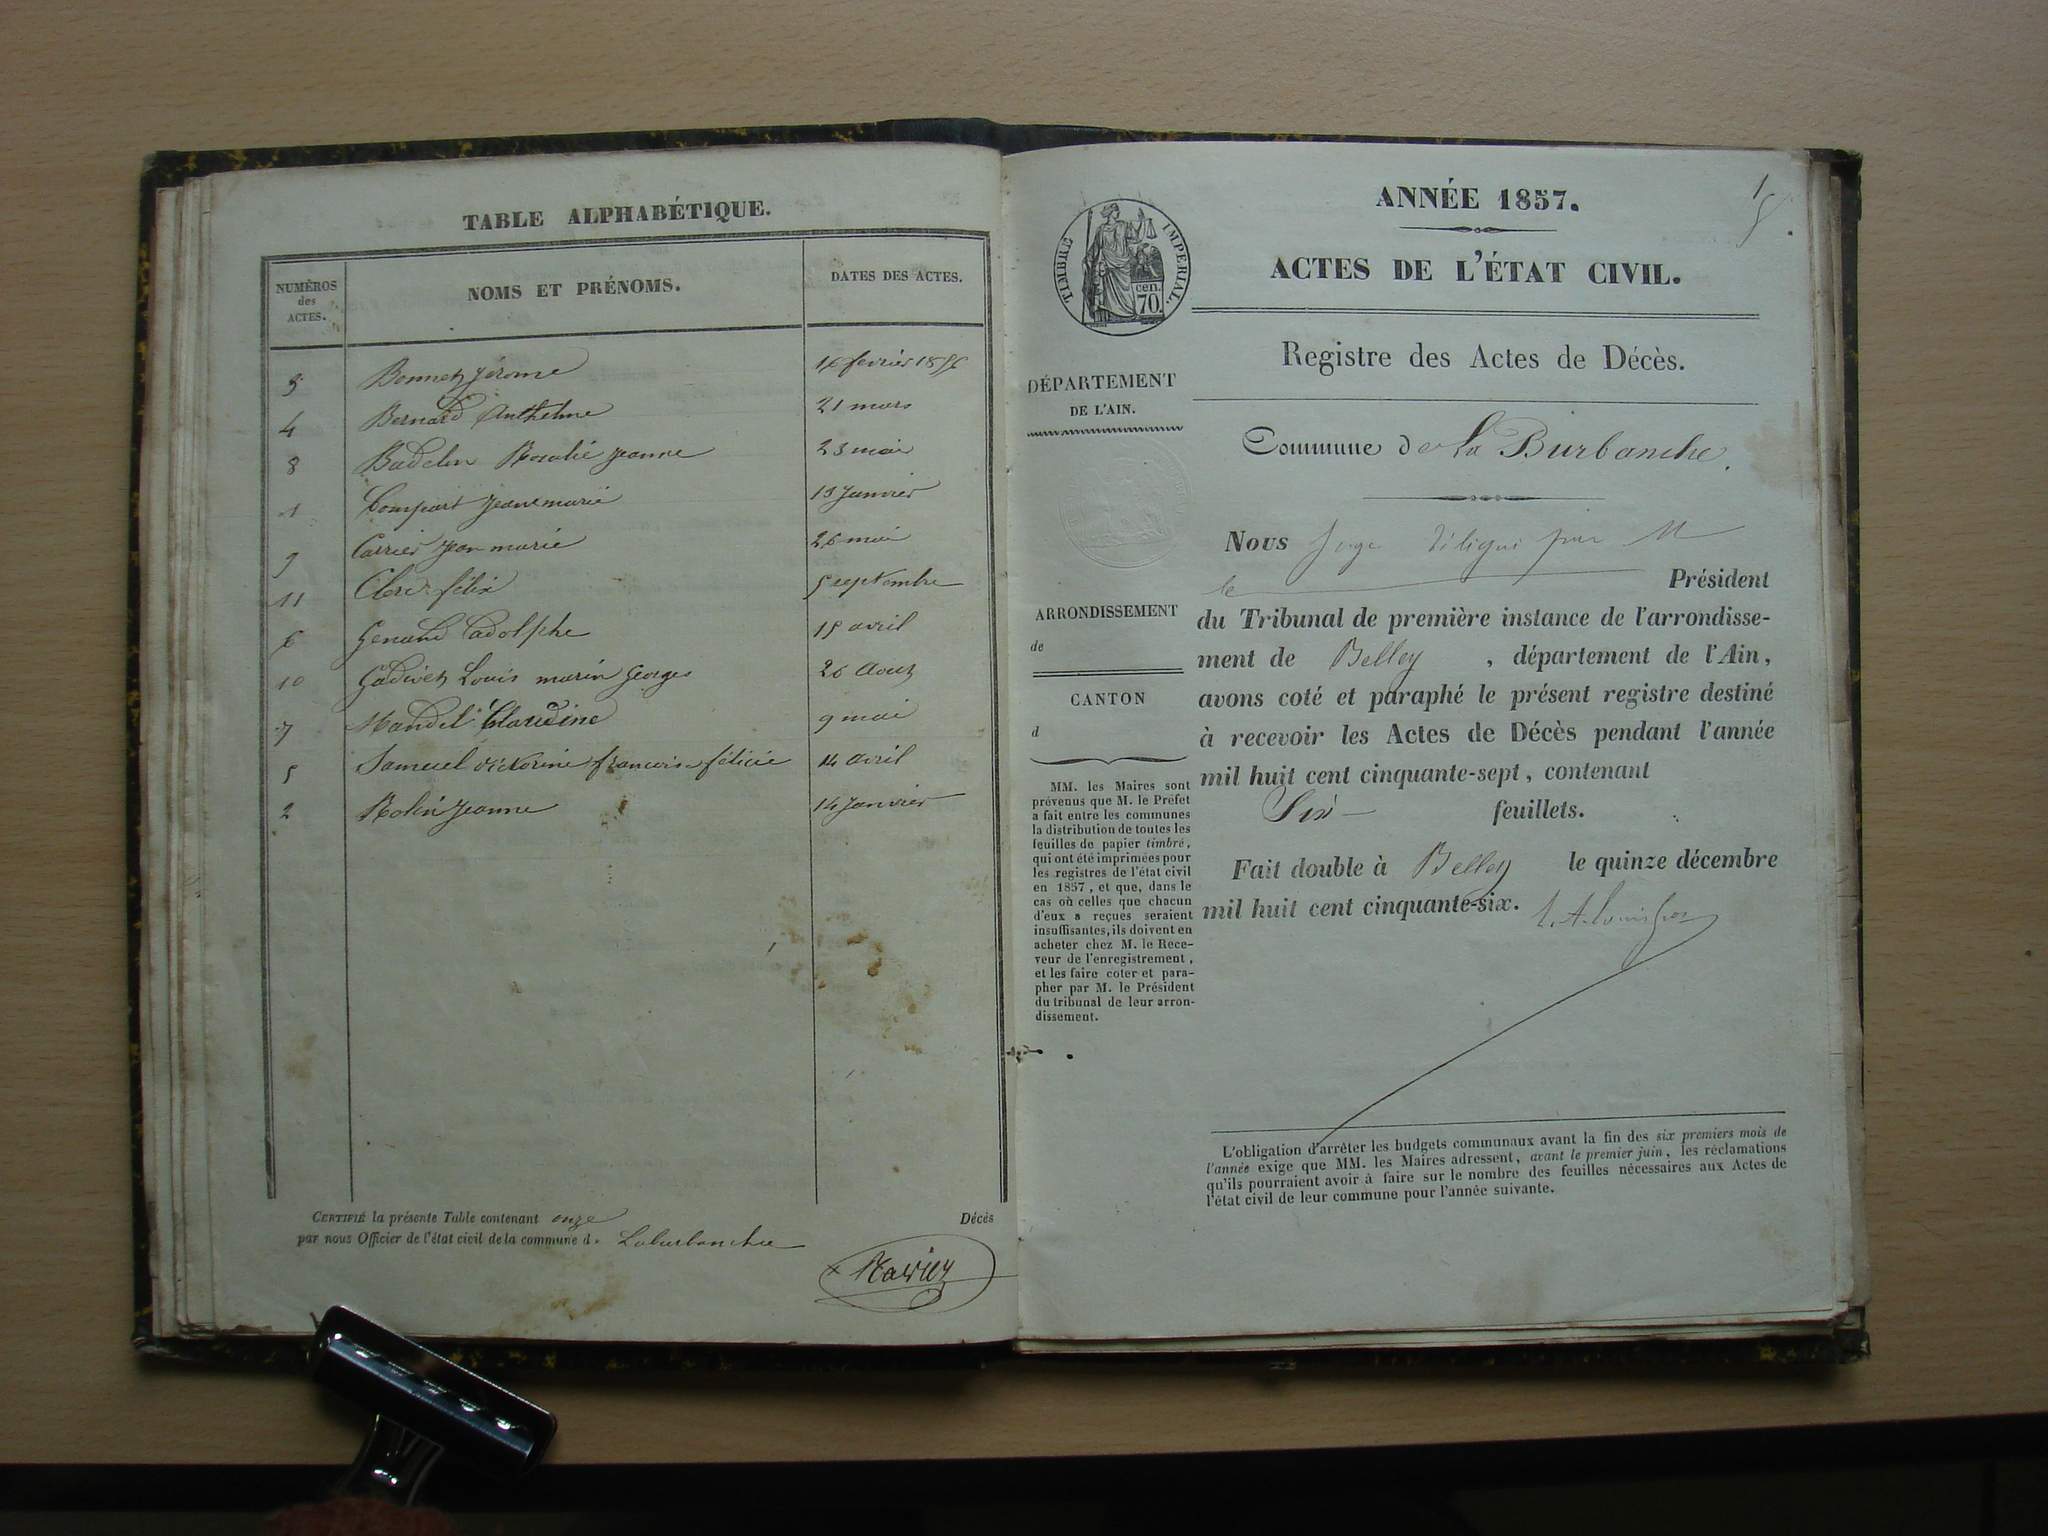 TABLE ALPHABÉTIQUE.
NUMÉROS des ACTES. NOMS ET PRÉNOMS. DATES DES ACTES.
3 Bonnet jérome 16 fevrier 1856
4 Bernard Anthelme 21 mars
8 Badelin Rosalie jeanne 23 mai
1 Compart jeanemarie 13 Janvier
9 Carrier jean marie 26 mai
11 Clerc félix 5 septembre
6 adolphe 15 avril
10 Louis marin georges 26 Aout
7 Mandel Claudine 9 mai
5 Samuel victorine francoise félicie 14 avril
2 jeanne 14 Janvier
CERTIFIÉ la présente Table contenant onze Décès
par nous Officier de l'état civil de la commune d. Laburbanche
ANNÉE 1857.
ACTES DE L'ÉTAT CIVIL.
TIMBRE IMPERIAL.
cen.
70.
Registre des Actes de Décès.
DÉPARTEMENT
DE L'AIN.
Commune de La Burbanche.
ARRONDISSEMENT
de
CANTON
d
MM. les Maires sont
prévenus que M. le Préfet
a fait entre les communes
la distribution de toutes les
feuilles de papier timbré,
qui ont été imprimées pour
les registres de l'état civil
en 1857, et que, dans le
cas où celles que chacun
d'eux a reçues seraient
insuffisantes, ils doivent en
acheter chez M. le Rece-
veur de l'enregistrement,
et les faire coter et para-
pher par M. le Président
du tribunal de leur arron-
dissement.
Nous juge délégué par M
le Président
du Tribunal de première instance de l'arrondisse-
ment de Belley, département de l'Ain,
avons coté et paraphé le présent registre destiné
à recevoir les Actes de Décès pendant l'année
mil huit cent cinquante-sept, contenant
Six feuillets.
Fait double à Belley le quinze décembre
mil huit cent cinquante-six.
L'obligation d'arrêter les budgets communaux avant la fin des six premiers mois de
l'année exige que MM. les Maires adressent, avant le premier juin, les réclamations
qu'ils pourraient avoir à faire sur le nombre des feuilles nécessaires aux Actes de
l'état civil de leur commune pour l'année suivante.